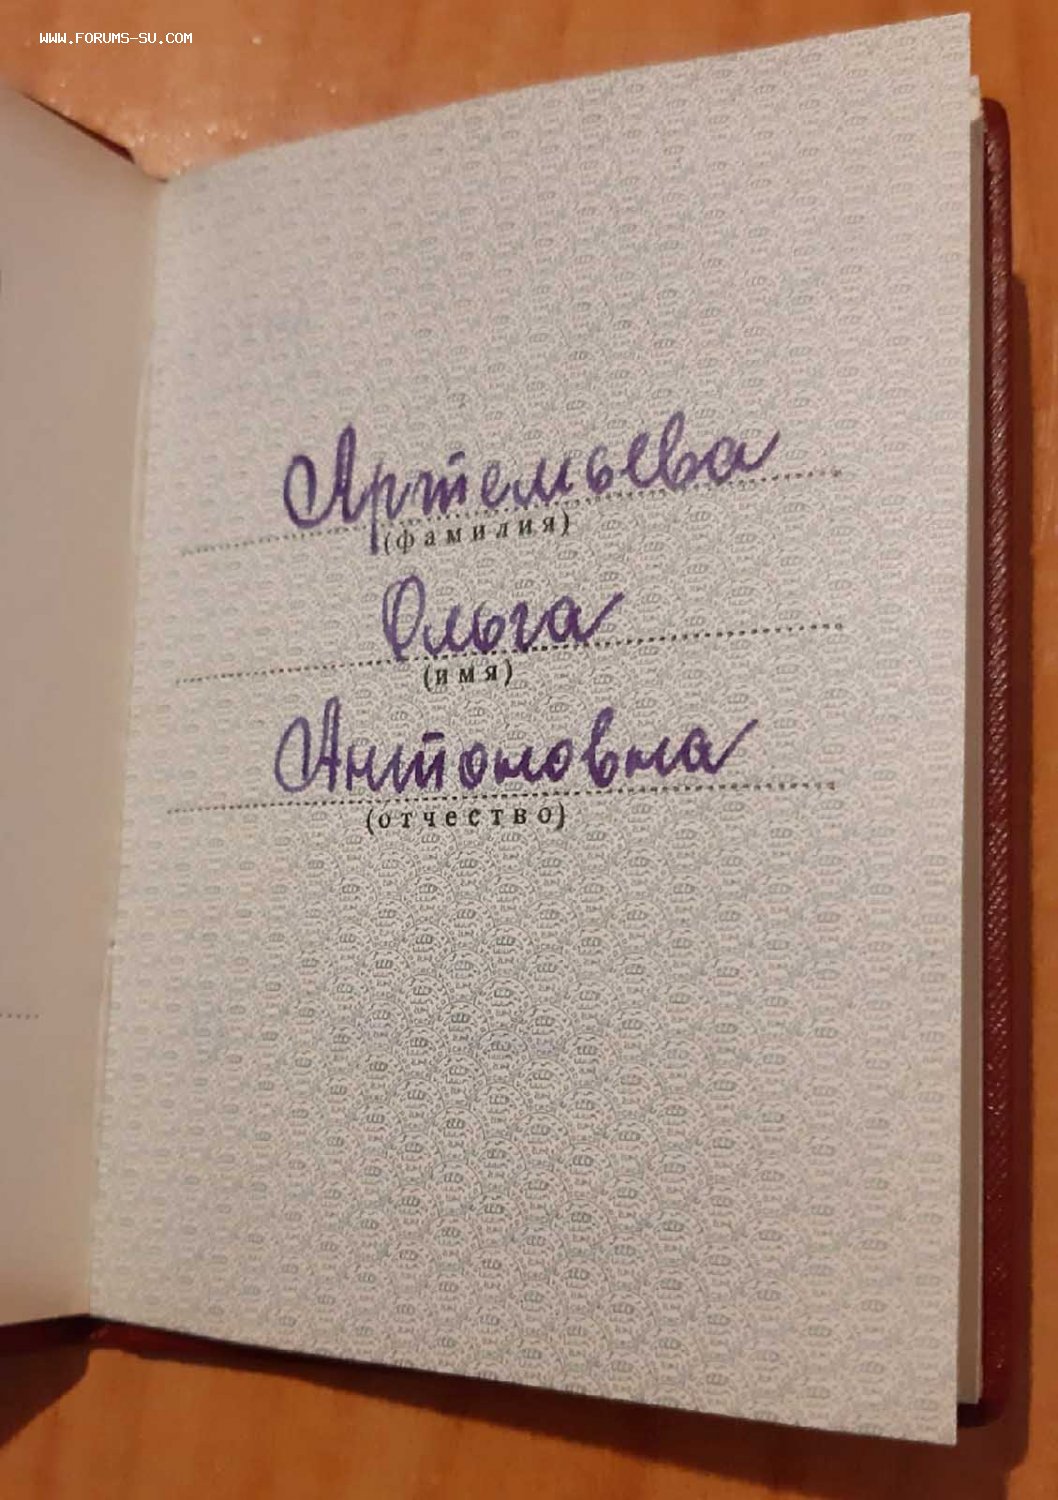 WWW.FORUMS-SU.COM
Артемьева
(фамилия)
Ольга
(имя)
Антоновна
(отчество)